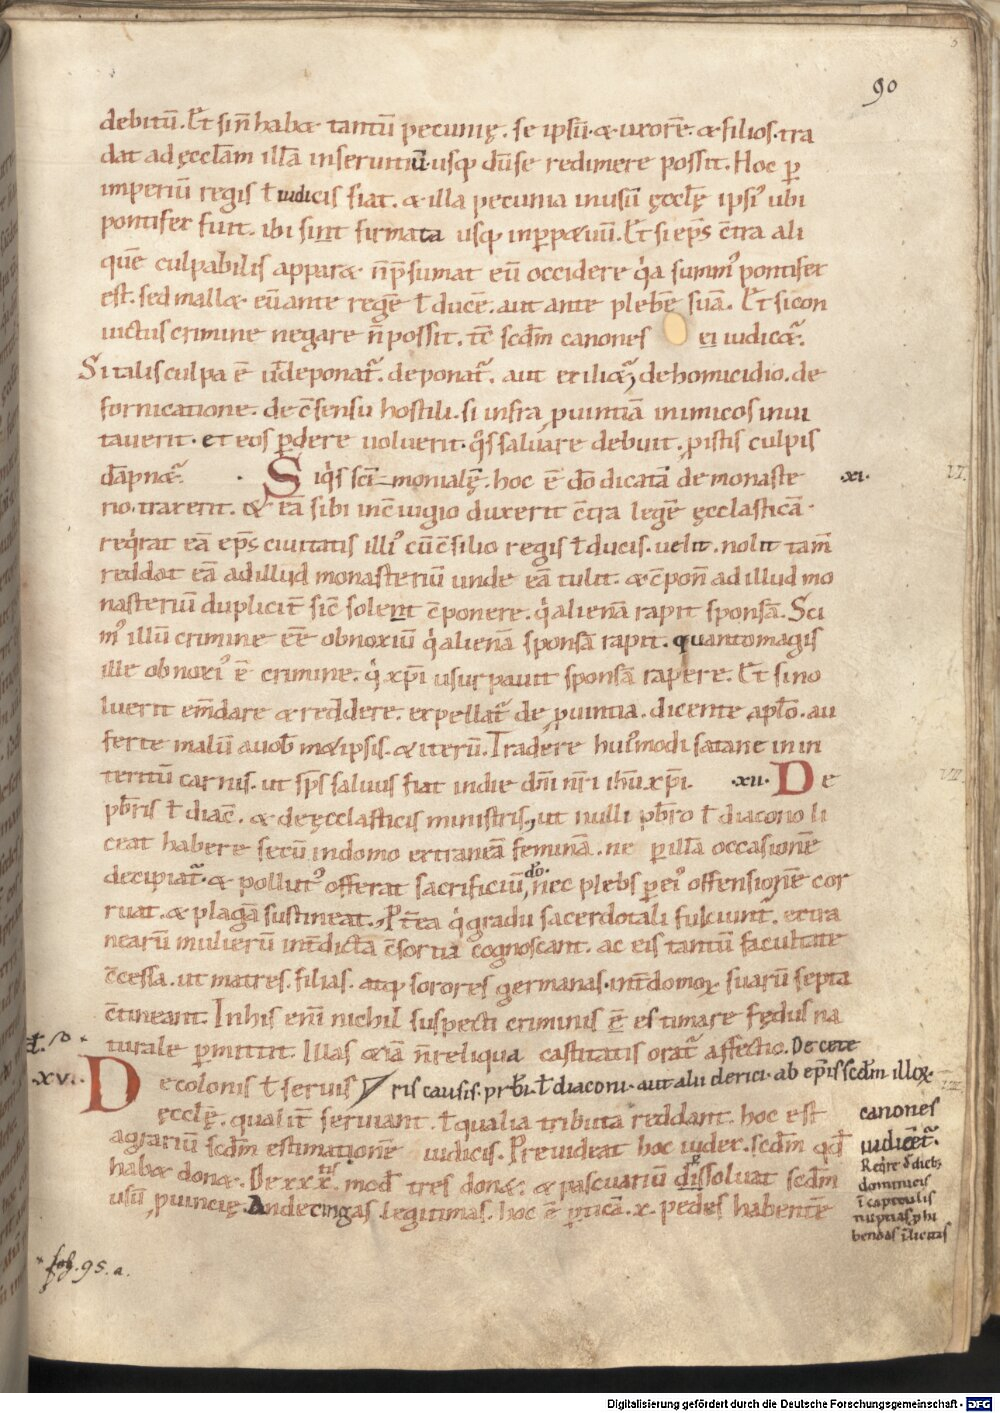 90
debitū. Et si n̄ habet tantū pecunię. se ipsū. et uxorē. et filios. tra
dat ad ęccłam illā in seruitiū. usq; dū se redimere possit. Hoc ꝑ
imperiū regis ł iudicis fiat. et illa pecunia in usū ęcclę̄ ipsi᾽ ubi
pontifex fuit. ibi sint firmata usq; in ꝑpetuū. Et si ep̄s c̄tra ali
quē culpabilis apparet n̄ p̄sumat eū occidere q̓a summ᾽ pontifex
est. sed mallet eū ante regē ł ducē. aut ante plebē suā. Et si con
uictus crimine negare n̄ possit. tc̄ scd̄m canones ei iudicet᷑.
Si talis culpa ē ut deponat᷑. deponat᷑. aut exiliet᷑, de homicidio. de
fornicatione. de c̄sensu hostili. si infra ꝓuintiā inimicos inui
tauerit. et eos ꝑdere uoluerit. q̓s saluare debuit. ꝓ istis culpis
dāpnet᷑. Si q̓s sc̄i monialē. hoc ē dō dicatā de monaste .xi.
rio. traxerit. et eā sibi in c̄iugio duxerit c̄tra legē ęcclasticā.
req̓rat eā ep̄s ciuitatis illi᾽ cū c̄silio regis ł ducis. uelit. nolit tam̄
reddat eā ad illud monasteriū unde eā tulit. et c̄pon̄ ad illud mo
nasteriū duplicit̄ sic̄ solent c̄ponere. q̓ alienā rapit sponsā. Sci
m᾽ illū crimine eē obnoxiū q̓ alienā sponsā rapit. quanto magis
ille obnoxi᾽ ē crimine. q̓ xp̄i usurpauit sponsā rapere. Et si no
luerit em̄dare et reddere. expellat᷑ de ꝓuintia. dicente apłō. au
ferte malū a uob̄ met ipsis. et iterū. Tradere hui᾽modi satane in in
teritū carnis. ut sp̄s saluus fiat in die dn̄i nr̄i ih̄u xp̄i. .xii. De
pb̄ris ł diac̄. et de ęcclasticis ministris, ut nulli pb̄ro ł diacono li
ceat habere secū in domo extraneā feminā. ne ꝑ illā occasionē
decipiat᷑. et pollut᾽ offerat sacrificiū dō. nec plebs ꝑ ei᾽ offensionē cor
ruat. et plagā sustineat. P̄t̄ea q̓ gradu sacerdotali fulciunt᷑. extra
nearū mulierū int̄dicta c̄sortia cognoscant. ac eis tantū facultate
c̄cessa. ut matres. filias. atq; sorores germanas. int̄ domoꝝ suarū septa
c̄tineant. In his eni nichil suspecti criminis ē estimare fędus na
turale ꝑmittit. Illas etiā n̄ reliqua castitatis orat᷑ affectio. De cete
ris causis. prb̄i. ł diaconi. aut alii clerici. ab ep̄is scd̄m illoꝝ
canones
iudicēt᷑.
.xvi. De colonis ł seruis
ęcclę. qualit̄ seruiant. ł qualia tributa reddant. hoc est
agrariū scd̄m estimationē iudicis. Preuideat hoc iudex. scd̄m qd̄
habet donet. De xxx. tis mod̄ tres donet. et pascuariū dissoluat scd̄m
usū ꝓuincię. Andecingas legitimas. hoc ē ꝑticā. x. pedes habentē
Req̓re
dominicis
ī capitulis
nuptias ꝓhi
bendas īlicitas
fol. 95. a.
Digitalisierung gefördert durch die Deutsche Forschungsgemeinschaft - DFG